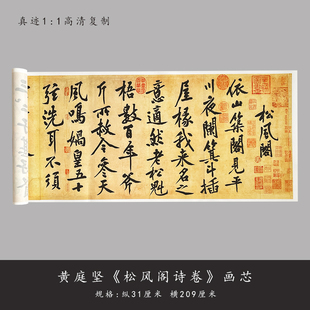 真迹1:1高清复制
松风阁
依山築閣見平
川夜闌箕斗插
屋椽我来名之
意適然老松魁
梧數百年斧
斤所赦今參天
風鳴媧皇五十
弦洗耳不須
黄庭坚《松风阁诗卷》画芯
规格:纵31厘米 横209厘米